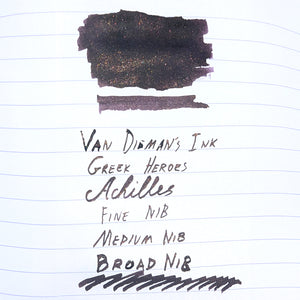 Van Dieman's Ink
Greek Heroes
Achilles
Fine Nib
Medium Nib
Broad Nib